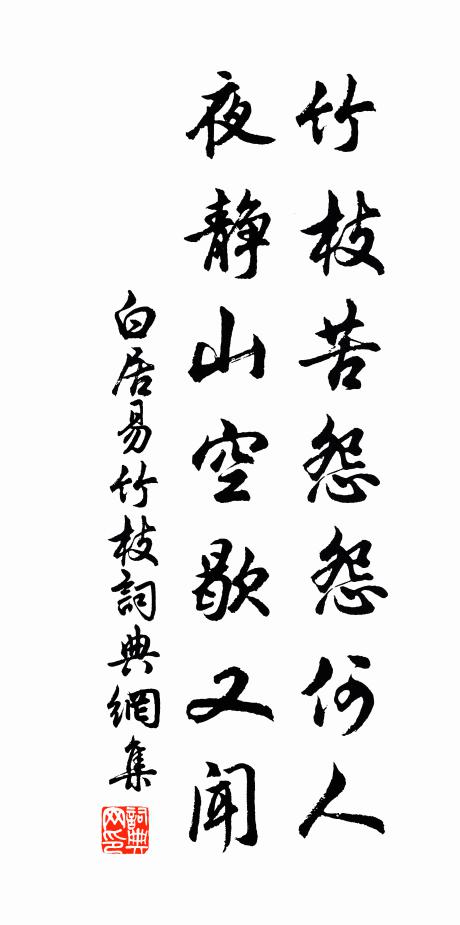 竹枝苦怨怨何人
夜静山空歇又聞
白居易竹枝詞典網集
詞典网印